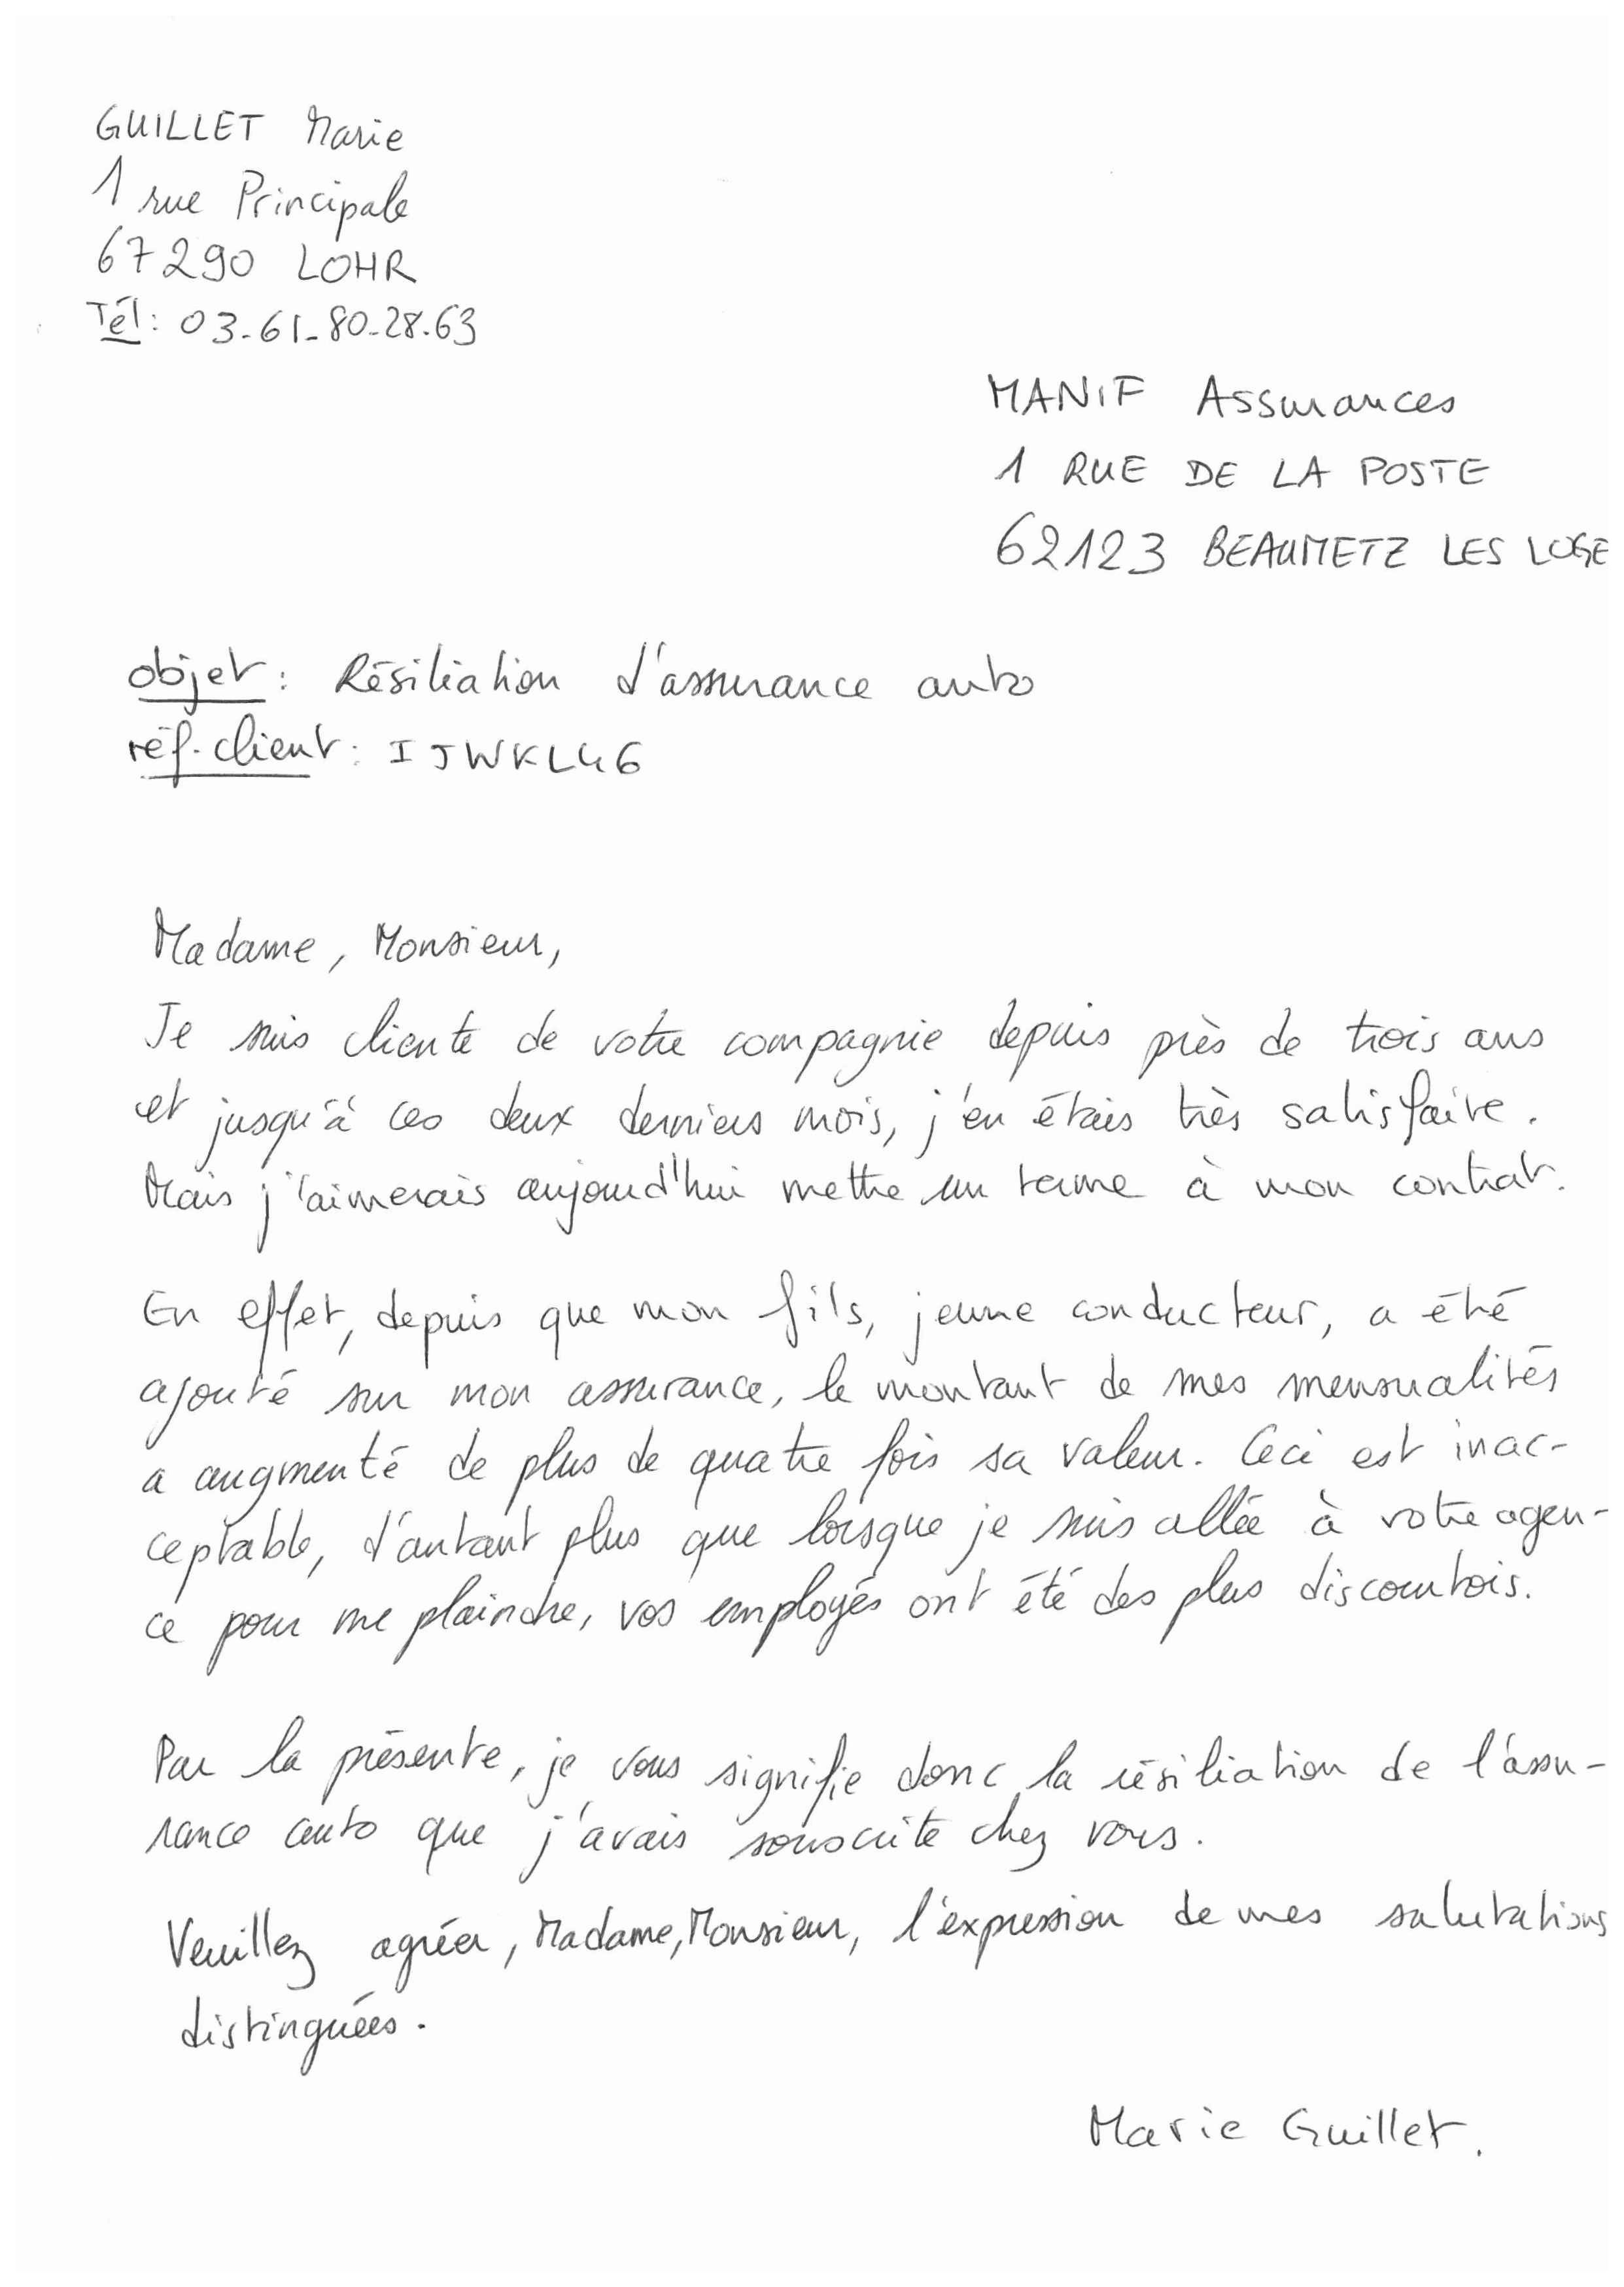 GUILLET Marie
1 rue Principale
67290 LOHR
Tél: 03-61-80-28.63
MANIF Assurances
1 RUE DE LA POSTE
62123 BEAUMETZ LES LOGE
objet: Résiliation d'assurance auto
réf. client: IJWKL46
Madame, Monsieur,
Je suis cliente de votre compagnie depuis près de trois ans
et jusqu'à ces deux derniers mois, j'en étais très satisfaite.
Mais j'aimerais aujourd'hui mettre un terme à mon contrat.
En effet, depuis que mon fils, jeune conducteur, a été
ajouté sur mon assurance, le montant de mes mensualités
a augmenté de plus de quatre fois sa valeur. Ceci est inac-
ceptable, d'autant plus que lorsque je suis allée à votre agen-
ce pour me plaindre, vos employés ont été des plus discourtois.
Par la présente, je vous signifie donc la résiliation de l'assu-
rance auto que j'avais souscrite chez vous.
Veuillez agréer, Madame, Monsieur, l'expression de mes salutations
distinguées.
Marie Guillet.